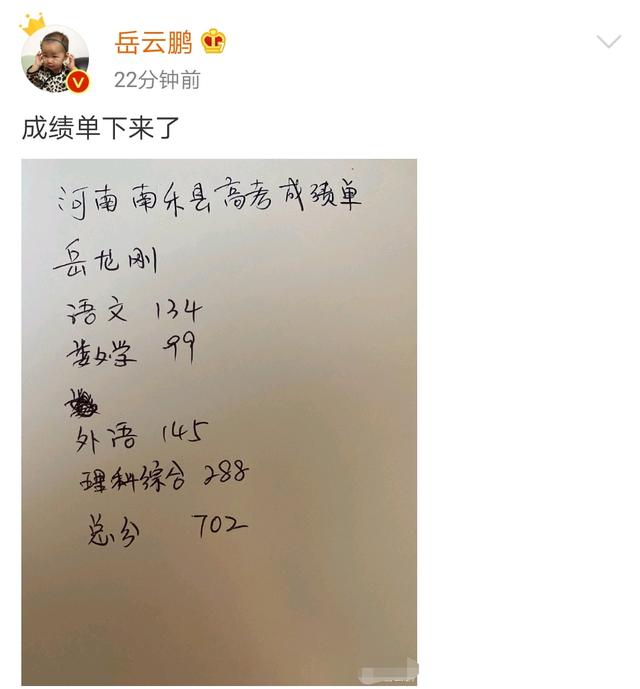 岳云鹏
22分钟前
成绩单下来了
河南南乐县高考成绩单
岳龙刚
语文 134
数学 99
外语 145
理科综合 288
总分 702